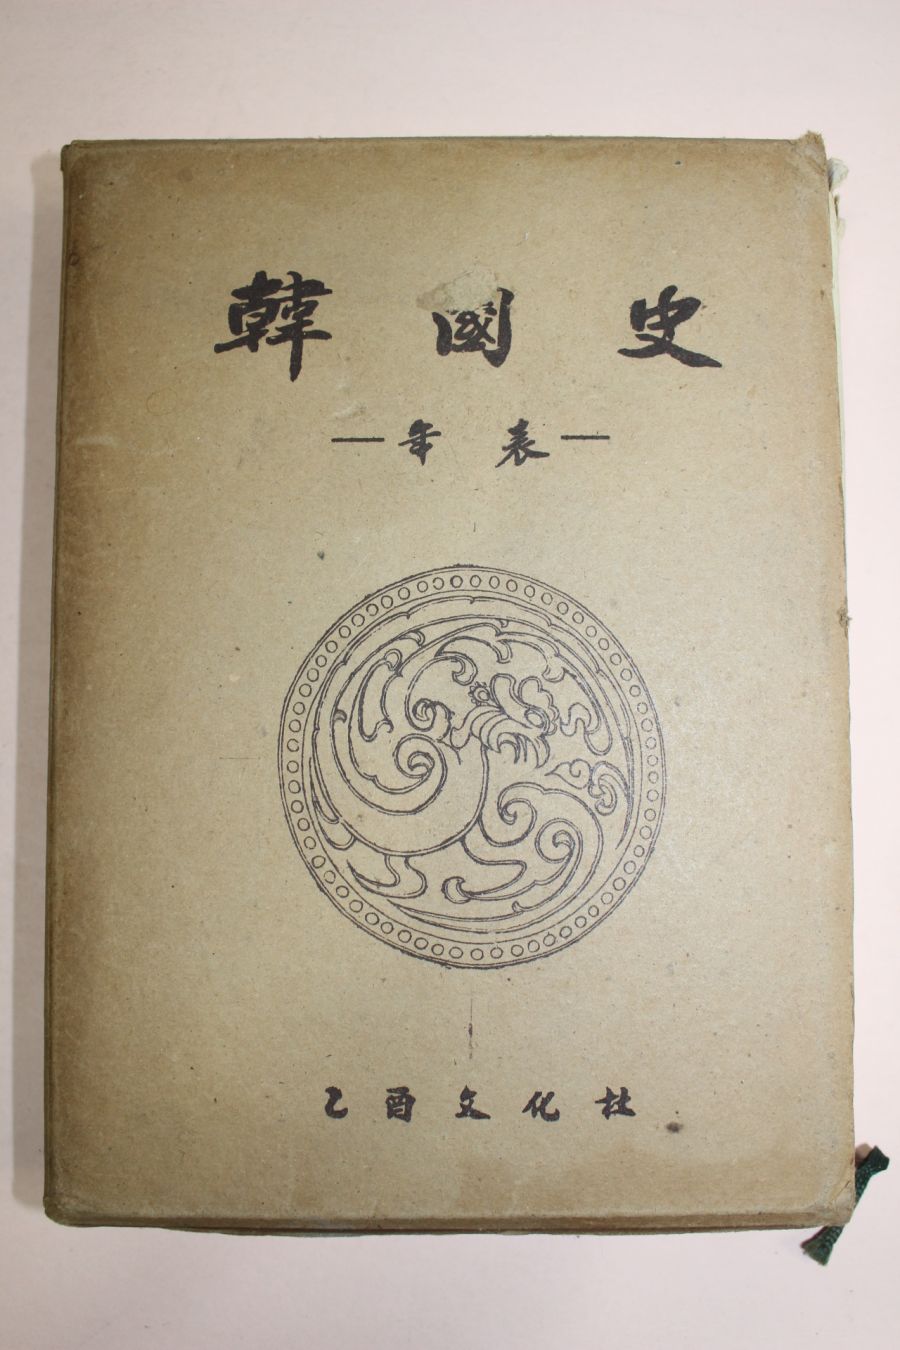 韓國史
—年表—
乙酉文化社